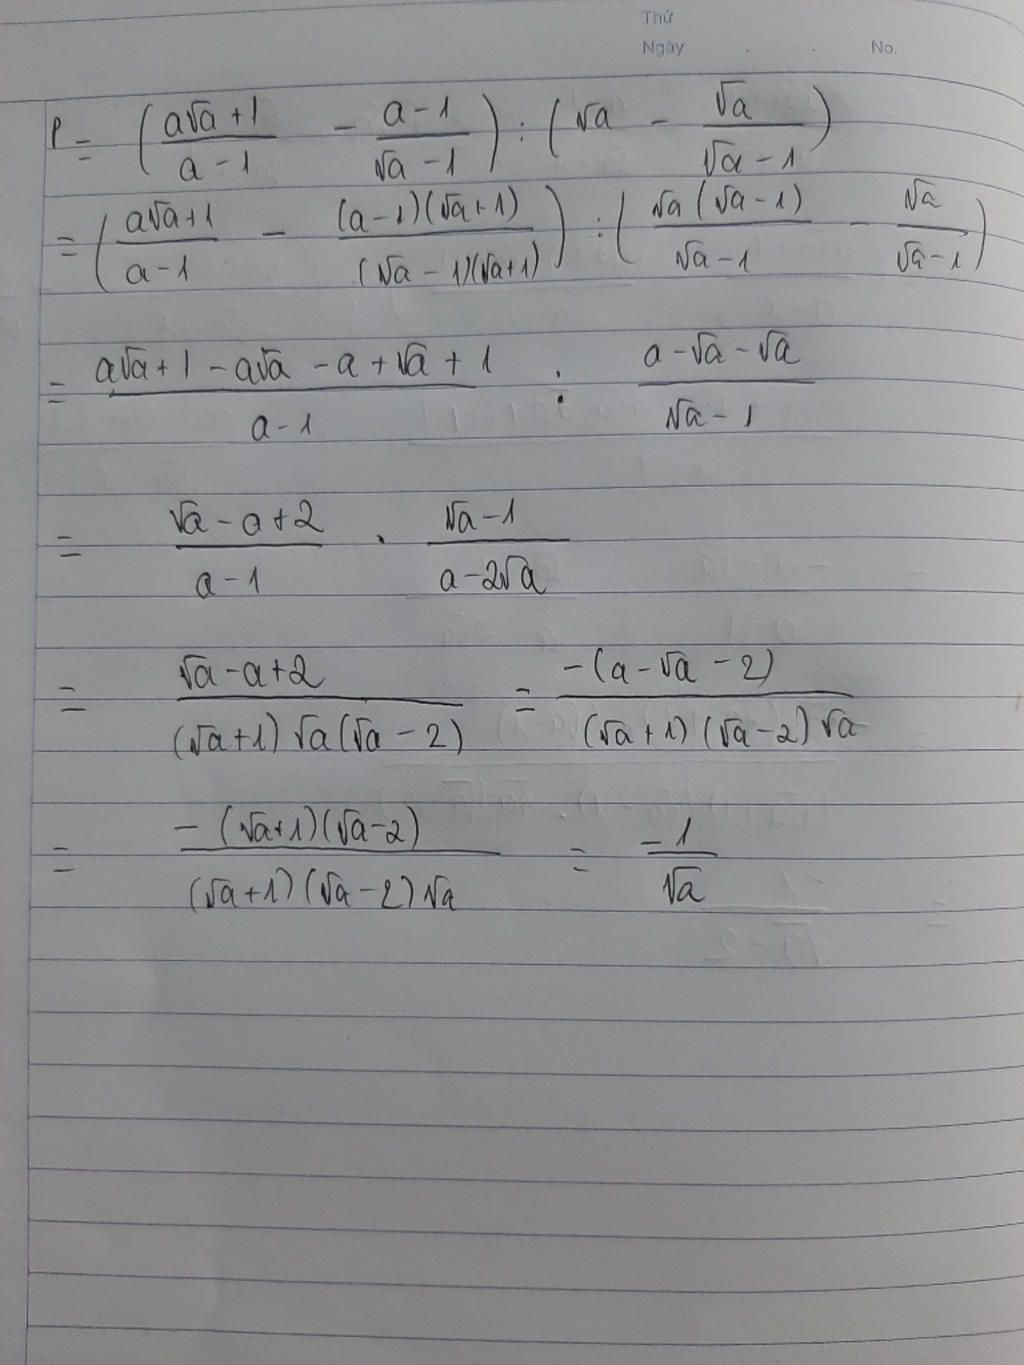 Thứ
Ngày . . No.
P = (a√a + 1 / a - 1 - a - 1 / √a - 1) : (√a - √a / √a - 1)
= (a√a + 1 / a - 1 - (a - 1)(√a + 1) / (√a - 1)(√a + 1)) : (√a(√a - 1) / √a - 1 - √a / √a - 1)
= a√a + 1 - a√a - a + √a + 1 / a - 1 : a - √a - √a / √a - 1
= √a - a + 2 / a - 1 . √a - 1 / a - 2√a
= √a - a + 2 / (√a + 1) √a (√a - 2) = -(a - √a - 2) / (√a + 1)(√a - 2)√a
= -(√a + 1)(√a - 2) / (√a + 1)(√a - 2)√a = -1 / √a